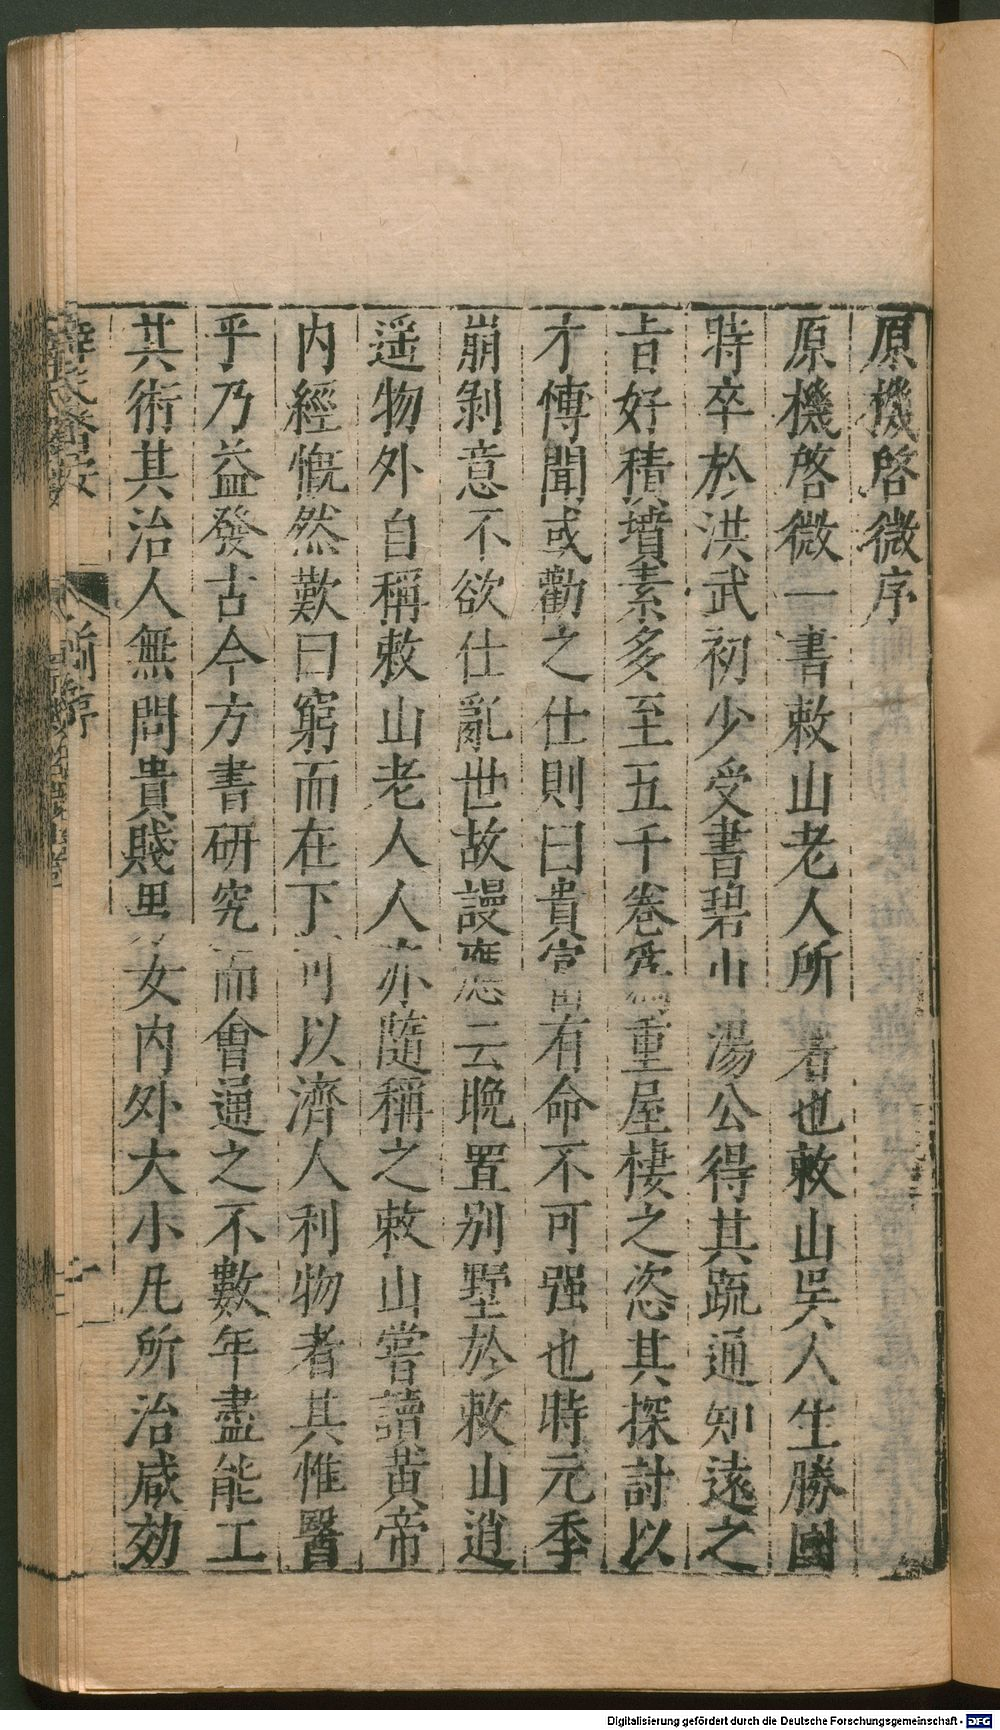 原機啓微序
原機啓微一書敕山老人所著也敕山吳人生勝國
時卒於洪武初少受書碧山湯公得其疏通知遠之
旨好積墳素多至五千卷爲重屋棲之恣其探討以
才愽聞或勸之仕則曰貴富有命不可强也時元季
崩剝意不欲仕亂世故謾應云晚置别墅於敕山逍
遥物外自稱敕山老人人亦隨稱之敕山嘗讀黃帝
内經慨然歎曰窮而在下可以濟人利物者其惟醫
乎乃益發古今方書研究而會通之不數年盡能工
其術其治人無問貴賤男女内外大小凡所治咸効
薛氏醫按
前序
一
Digitalisierung gefördert durch die Deutsche Forschungsgemeinschaft - DFG